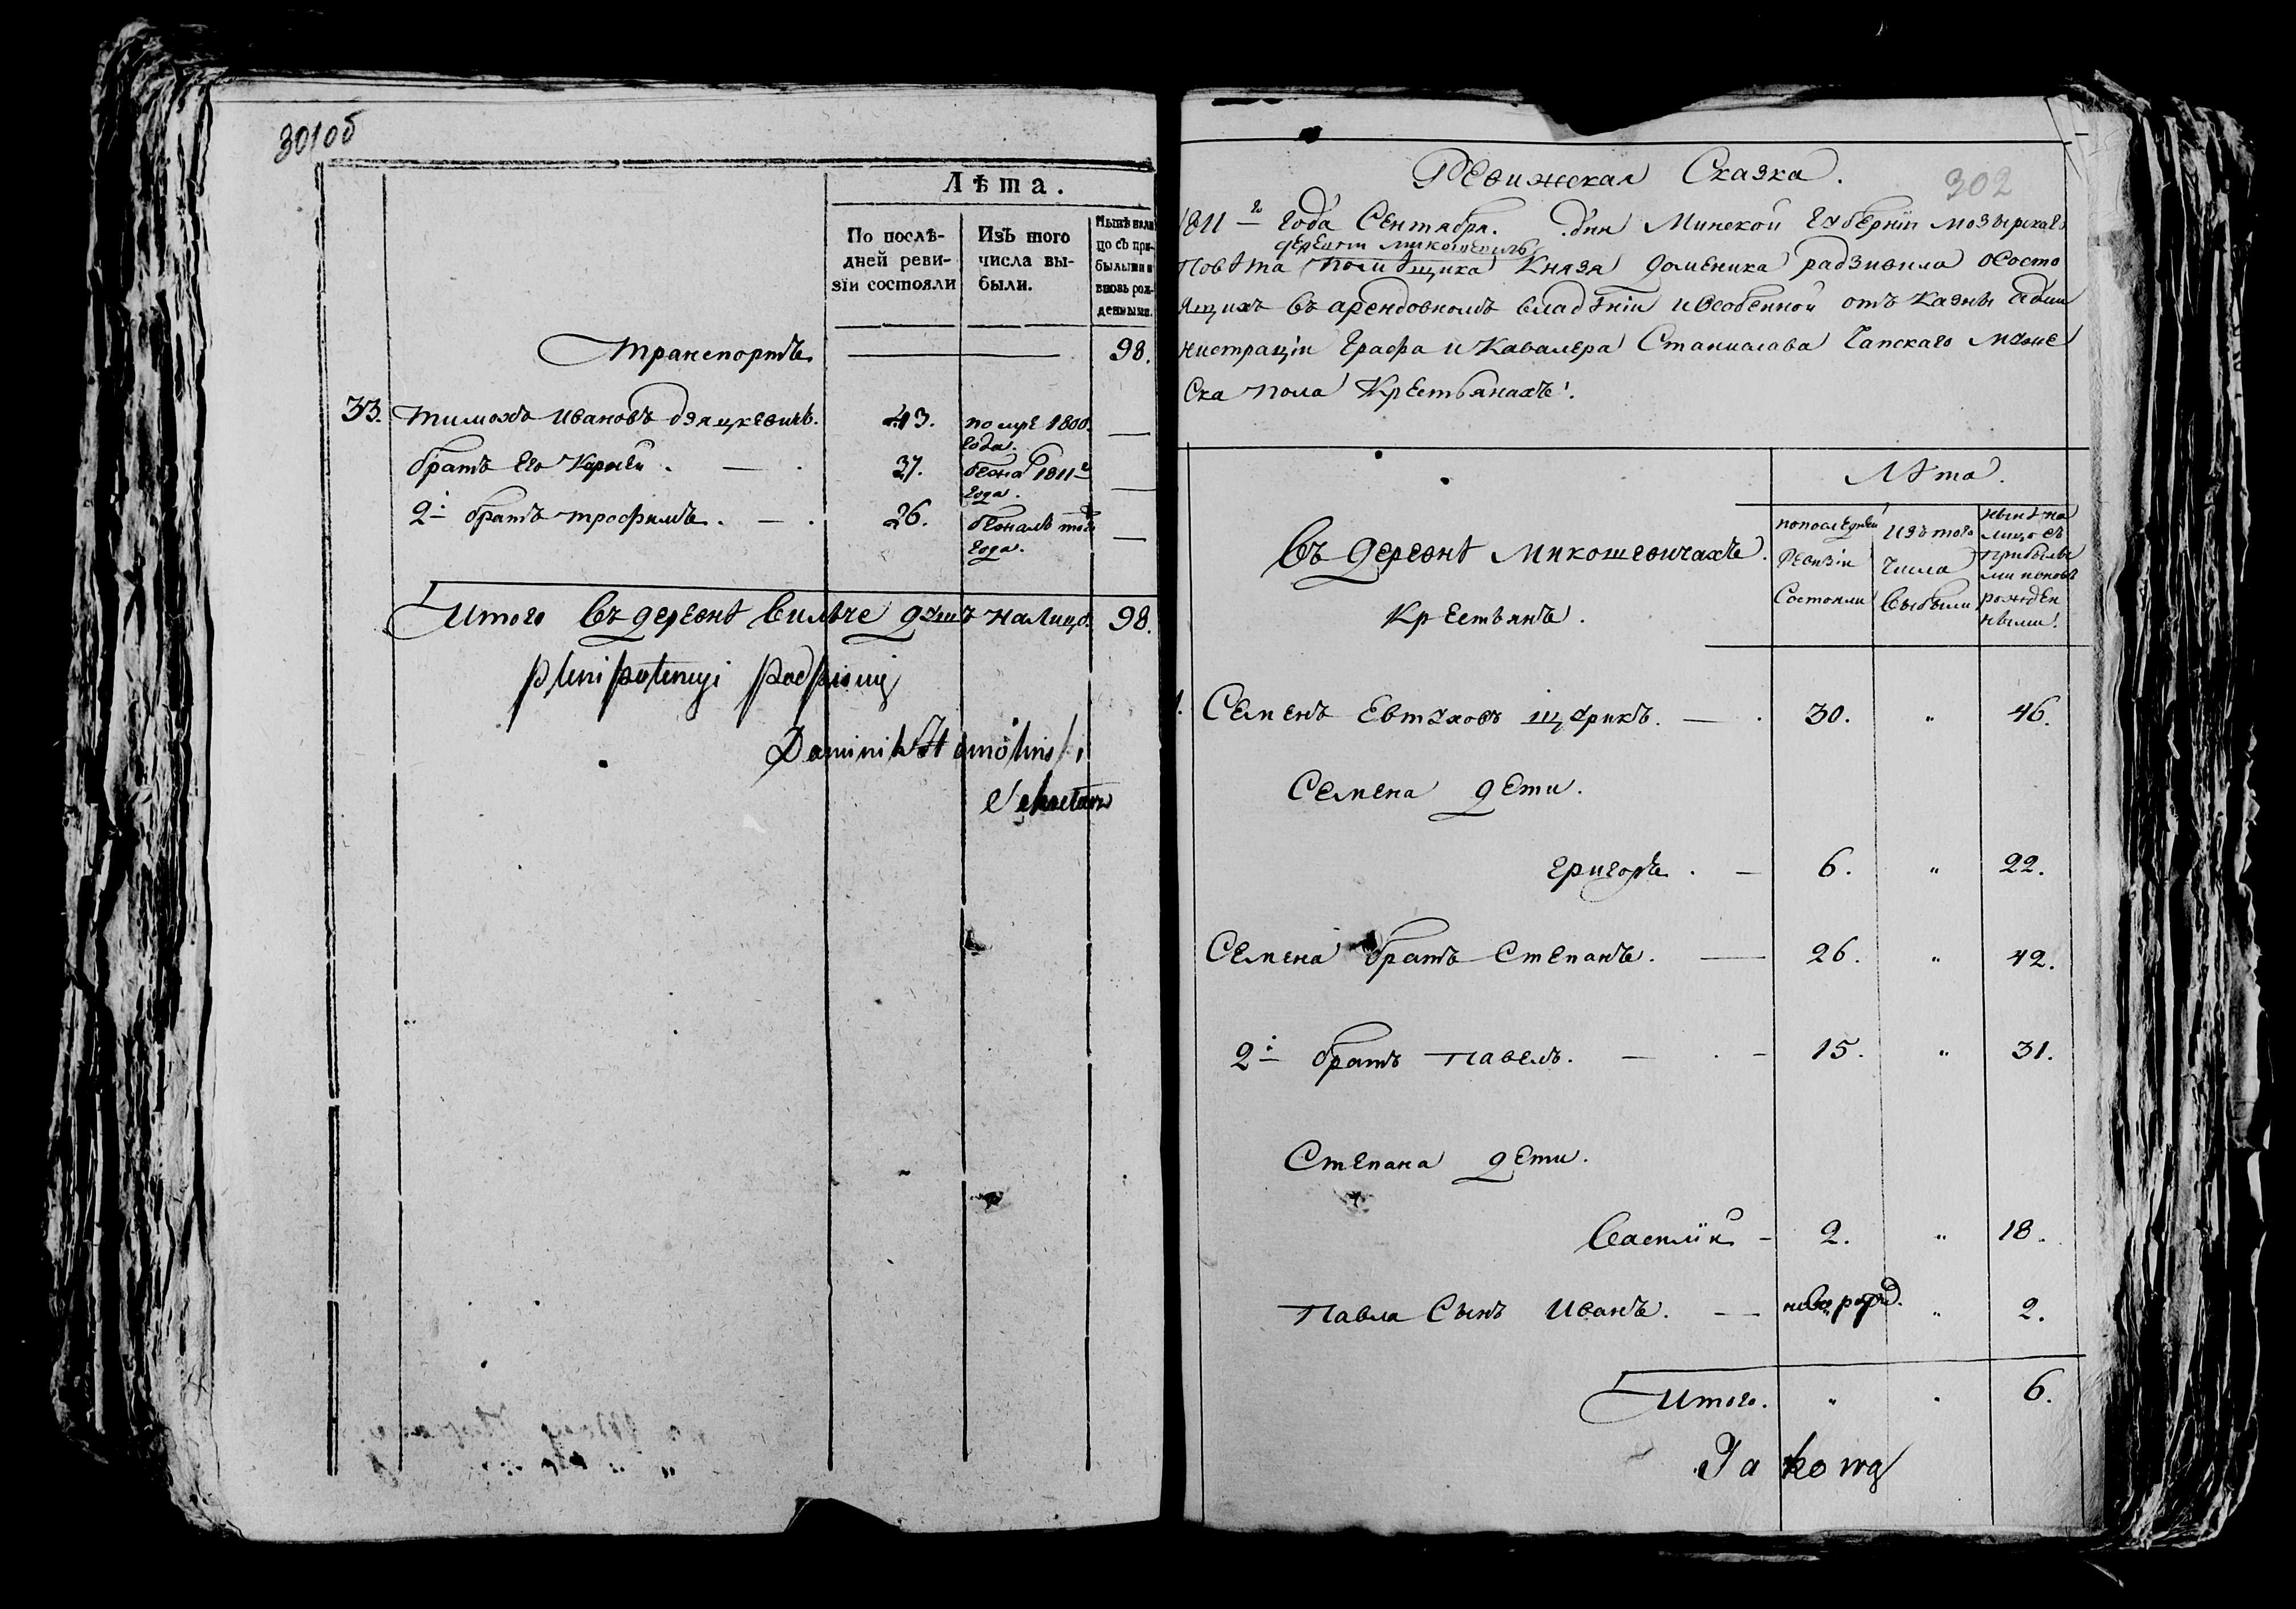 301об
Лѣта.
По послѣ-
дней реви-
зіи состояли
Изъ того
числа вы-
были.
Нынѣ нали
цо съ при-
былыми и
вновь рож-
денными.
транспортъ. 98.
33. Тимохъ Ивановъ дзяцкевичъ. 43. помре 1800.
года.
братъ его Корней. 37. бежа 1811г
года.
2й братъ трофимъ. 26. бежалъ того
года.
Итого въ деревнѣ Вильче душъ налицо. 98.
plenipotencyi podpisuię
Dominik
Sekretarz
302
Ревижская Сказка.
1811го года Сентября. дня Минской губерніи мозырскаго
деревни микошевичъ
Повѣта помѣщика Князя доменика радзивила ососто
ящихъ въ арендовномъ владѣніи иособенной отъ казны адми
нистраціи Графа и Кавалера Станислава Чапскаго мужне
Ска пола Крестьянахъ.
Лѣта.
въ деревнѣ Микошевичахъ.
Крестьянъ.
попоследней
ревизіи
Состояли
изъ того
Числа
выбыли
нынѣ на
лицо съ
прибылы
ми иновь
рожден
ными.
1. Семенъ Евтуховъ щурикъ. 30. „ 46.
Семена дети.
григоръ. 6. „ 22.
Семена братъ Степанъ. 26. „ 42.
2й братъ Павелъ. 15. „ 31.
Степана дети.
Василій 2. „ 18.
Павла Сынъ Иванъ. новорожд. „ 2.
Итого. „ „ 6.
Jakową